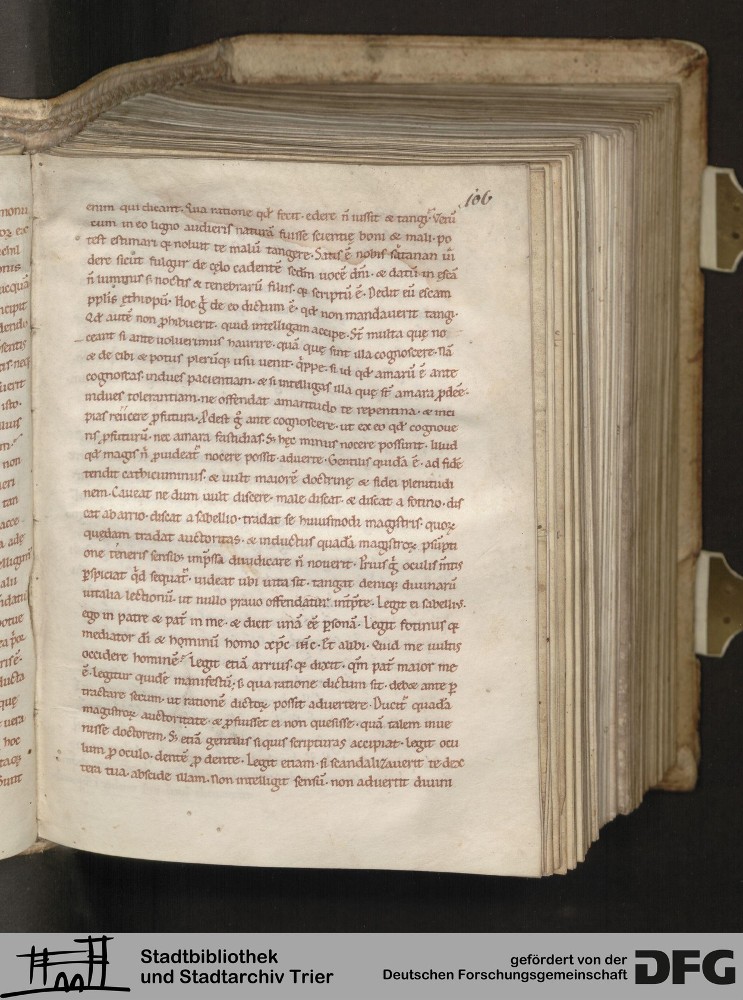 106
enim qui dicant. Qua ratione qd fecit. edere n̄ iussit & tangi. Verū
cum in eo ligno audieris naturā fuisse scientię boni & mali. po
test estimari qđ noluit te malū tangere. Satis ē nobis satanan ui
dere sicut fulgur de cęlo cadentē sedm uocē dnī. & datū in escā
n̄ iumgus s; noctis & tenebrarū filius. qđ scriptū ē. Dedit eū escam
pplis ęthiopū. Hoc ḡ de eo dictum ē. qđ non mandauerit tangi.
Qđ autē non ꝓhibuerit. quid intelligam accipe. St̄ multa que no
ceant si ante uoluerimus haurire. quā quę sint illa cognoscere. Nā
& de cibi & potus plerūq; usu uenit. qppe. si id qđ amarū ē ante
cognoscas. indues pacientiam. & si intelligas illa quę st̄ amara ꝓdeē.
indues tolerantiam. ne offendat amaritudo te repentina. & inci
pias reiicere ꝓfutura. Pdest ḡ ante cognoscere. ut ex eo qđ cognoue
ris ꝓfuturū. nec amara fastidias. S; hęc minus nocere possunt. Illud
qđ magis n̄ ꝓuideat nocere possit. aduerte. Gentilis quidā ē. ad fidē
tendit cathicuminus. & uult maiorē doctrinę & fidei plenitudi
nem. Caueat ne dum uult discere. male discat. & discat a fotino. dis
cat ab arrio. discat a sabellio. tradat se huiusmodi magistris. quoꝝ
quędam tradat auctoritas. & inductus quadā magistroꝝ psūpti
one teneris sensib; impssa diiudicare n̄ nouerit. Prius ḡ oculis mtis
pspiciat qđ sequat. uideat ubi uita sit. tangat deniq; diuinarū
uitalia lectionū. ut nullo prauo offendatur intpte. Legit ei sabelliu.
ego in patre & pat in me. & dicit unā eē psonā. Legit fotinus qđ
mediator di & hominū homo xp̄c ih̄c. Et alibi. Quid me uultis
occidere hominē? Legit etiā arrius. qđ dixit. qm pat maior me
ē. legitur quidē manifestū; s; qua ratione dictum sit. debet ante p
tractare secum. ut rationē dictoꝝ possit aduertere. Ducit quadā
magistroꝝ auctoritate. & ꝓfuisset ei non quesisse. quā talem inue
nisse doctorem. S; etiā gentilis siquis scripturas accipiat. legit ocu
lum ꝓ oculo. dentē ꝓ dente. Legit etiam. si scandalizauerit te dex
tera tua. abscide illam. Non intelligit sensū. non aduertit diuini
Stadtbibliothek
und Stadtarchiv Trier
gefördert von der
Deutschen Forschungsgemeinschaft
DFG